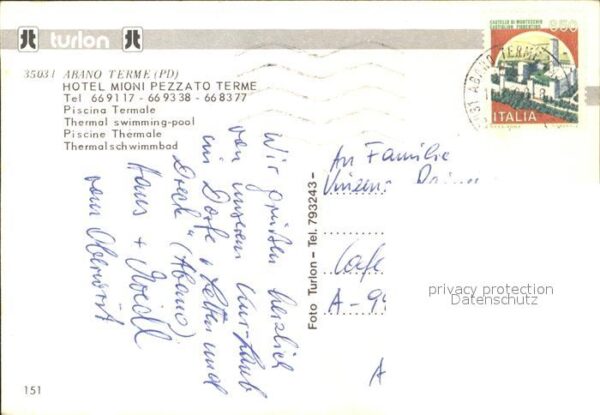 turlon
35031 ABANO TERME (PD)
HOTEL MIONI PEZZATO TERME
Tel 669117 - 669338 - 668377
Piscina Termale
Thermal swimming-pool
Piscine Thermale
Thermalschwimmbad
CASTELLO DI MONTECCHIO
CASTIGLION FIORENTINO
850
ITALIA
ABANO TERME
Wir grüßen herzlich
von unserem Kurlaub
im Dorfe "
und
Dreck" (Abano)
Hans +
vom Oberwirt
Foto Turlon - Tel. 793243 -
An Familie
Vinzenz
Cafe
A-99
A
privacy protection
Datenschutz
151